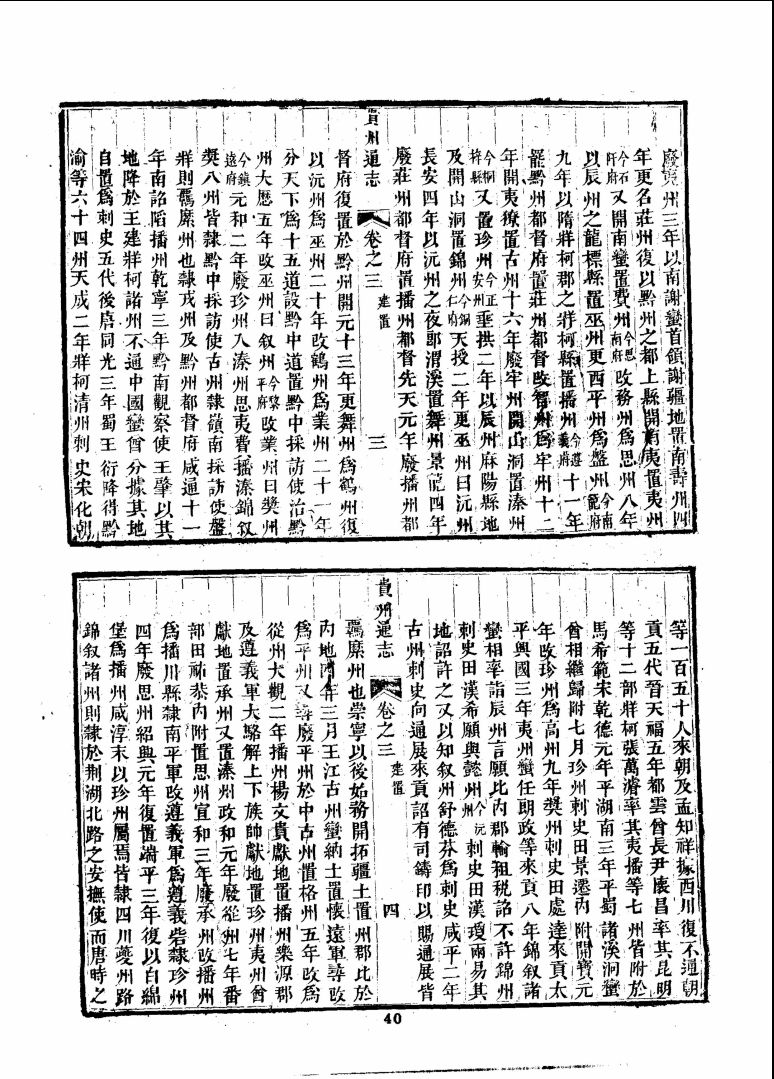 廢夷州三年以南謝蠻首領謝疆地置南壽州四
年更名莊州復以黔州之都上縣開南夷置夷州
今石阡府又開南蠻置費州今思南府改務州爲思州八年
以辰州之龍標縣置巫州更西平州爲盤州今南籠府
九年以隋牂柯郡之牂柯縣置播州今遵義府十一年
罷黔州都督府置莊州都督改智州爲牢州十二
年開夷獠置古州十六年廢牢州開山洞置溱州
今桐梓縣又置珍州今正安州垂拱二年以辰州麻陽縣地
及開山洞置錦州今銅仁府天授二年更巫州曰沅州
長安四年以沅州之夜郎渭溪置舞州景龍四年
廢莊州都督府置播州都督先天元年廢播州都
貴州通志
卷之三
建置
三
督府復置於黔州開元十三年更舞州爲鶴州復
以沅州爲巫州二十年改鶴州爲業州二十一年
分天下爲十五道設黔中道置黔中採訪使治黔
州大曆五年改巫州曰叙州今黎平府改業州曰奬州
今鎮遠府元和二年廢珍州入溱州思夷費播溱錦叙
奬八州皆隸黔中採訪使古州隸嶺南採訪使盤
牂則羈縻州也隸戎州及黔州都督府咸通十一
年南詔陷播州乾寧三年黔南觀察使王肇以其
地降於王建牂柯諸州不通中國蠻酋分據其地
自置爲刺史五代後唐同光三年蜀王衍降得黔
渝等六十四州天成二年牂柯清州刺史宋化朝
等一百五十人來朝及孟知祥據西川復不通朝
貢五代晉天福五年都雲酋長尹懷昌率其昆明
等十二部牂柯張萬濬率其夷播等七州皆附於
馬希範宋乾德元年平湖南三年平蜀諸溪洞蠻
酋相繼歸附七月珍州刺史田景遷內附開寶元
年改珍州爲高州九年奬州刺史田處達來貢太
平興國三年夷州蠻任朗政等來貢八年錦叙諸
蠻相率詣辰州言願比內郡輸租稅詔不許錦州
刺史田漢希願與懿州今沅州刺史田漢瓊兩易其
地詔許之又以知叙州舒德芬爲刺史咸平二年
古州刺史向通展來貢詔有司鑄印以賜通展皆
貴州通志
卷之三
建置
四
羈縻州也崇寧以後始務開拓疆土置州郡比於
內地四年三月王江古州蠻納土置懷遠軍尋改
爲平州又尋廢平州於中古州置格州五年改爲
從州大觀二年播州楊文貴獻地置播州樂源郡
及遵義軍大駱解上下族帥獻地置珍州夷州酋
獻地置承州又置溱州政和元年廢從州七年番
部田祐恭內附置思州宣和三年廢承州改播州
爲播川縣隸南平軍改遵義軍爲遵義砦隸珍州
四年廢思州紹興元年復置端平三年復以白綿
堡爲播州咸淳末以珍州屬焉皆隸四川夔州路
錦叙諸州則隸於荆湖北路之安撫使而唐時之
40